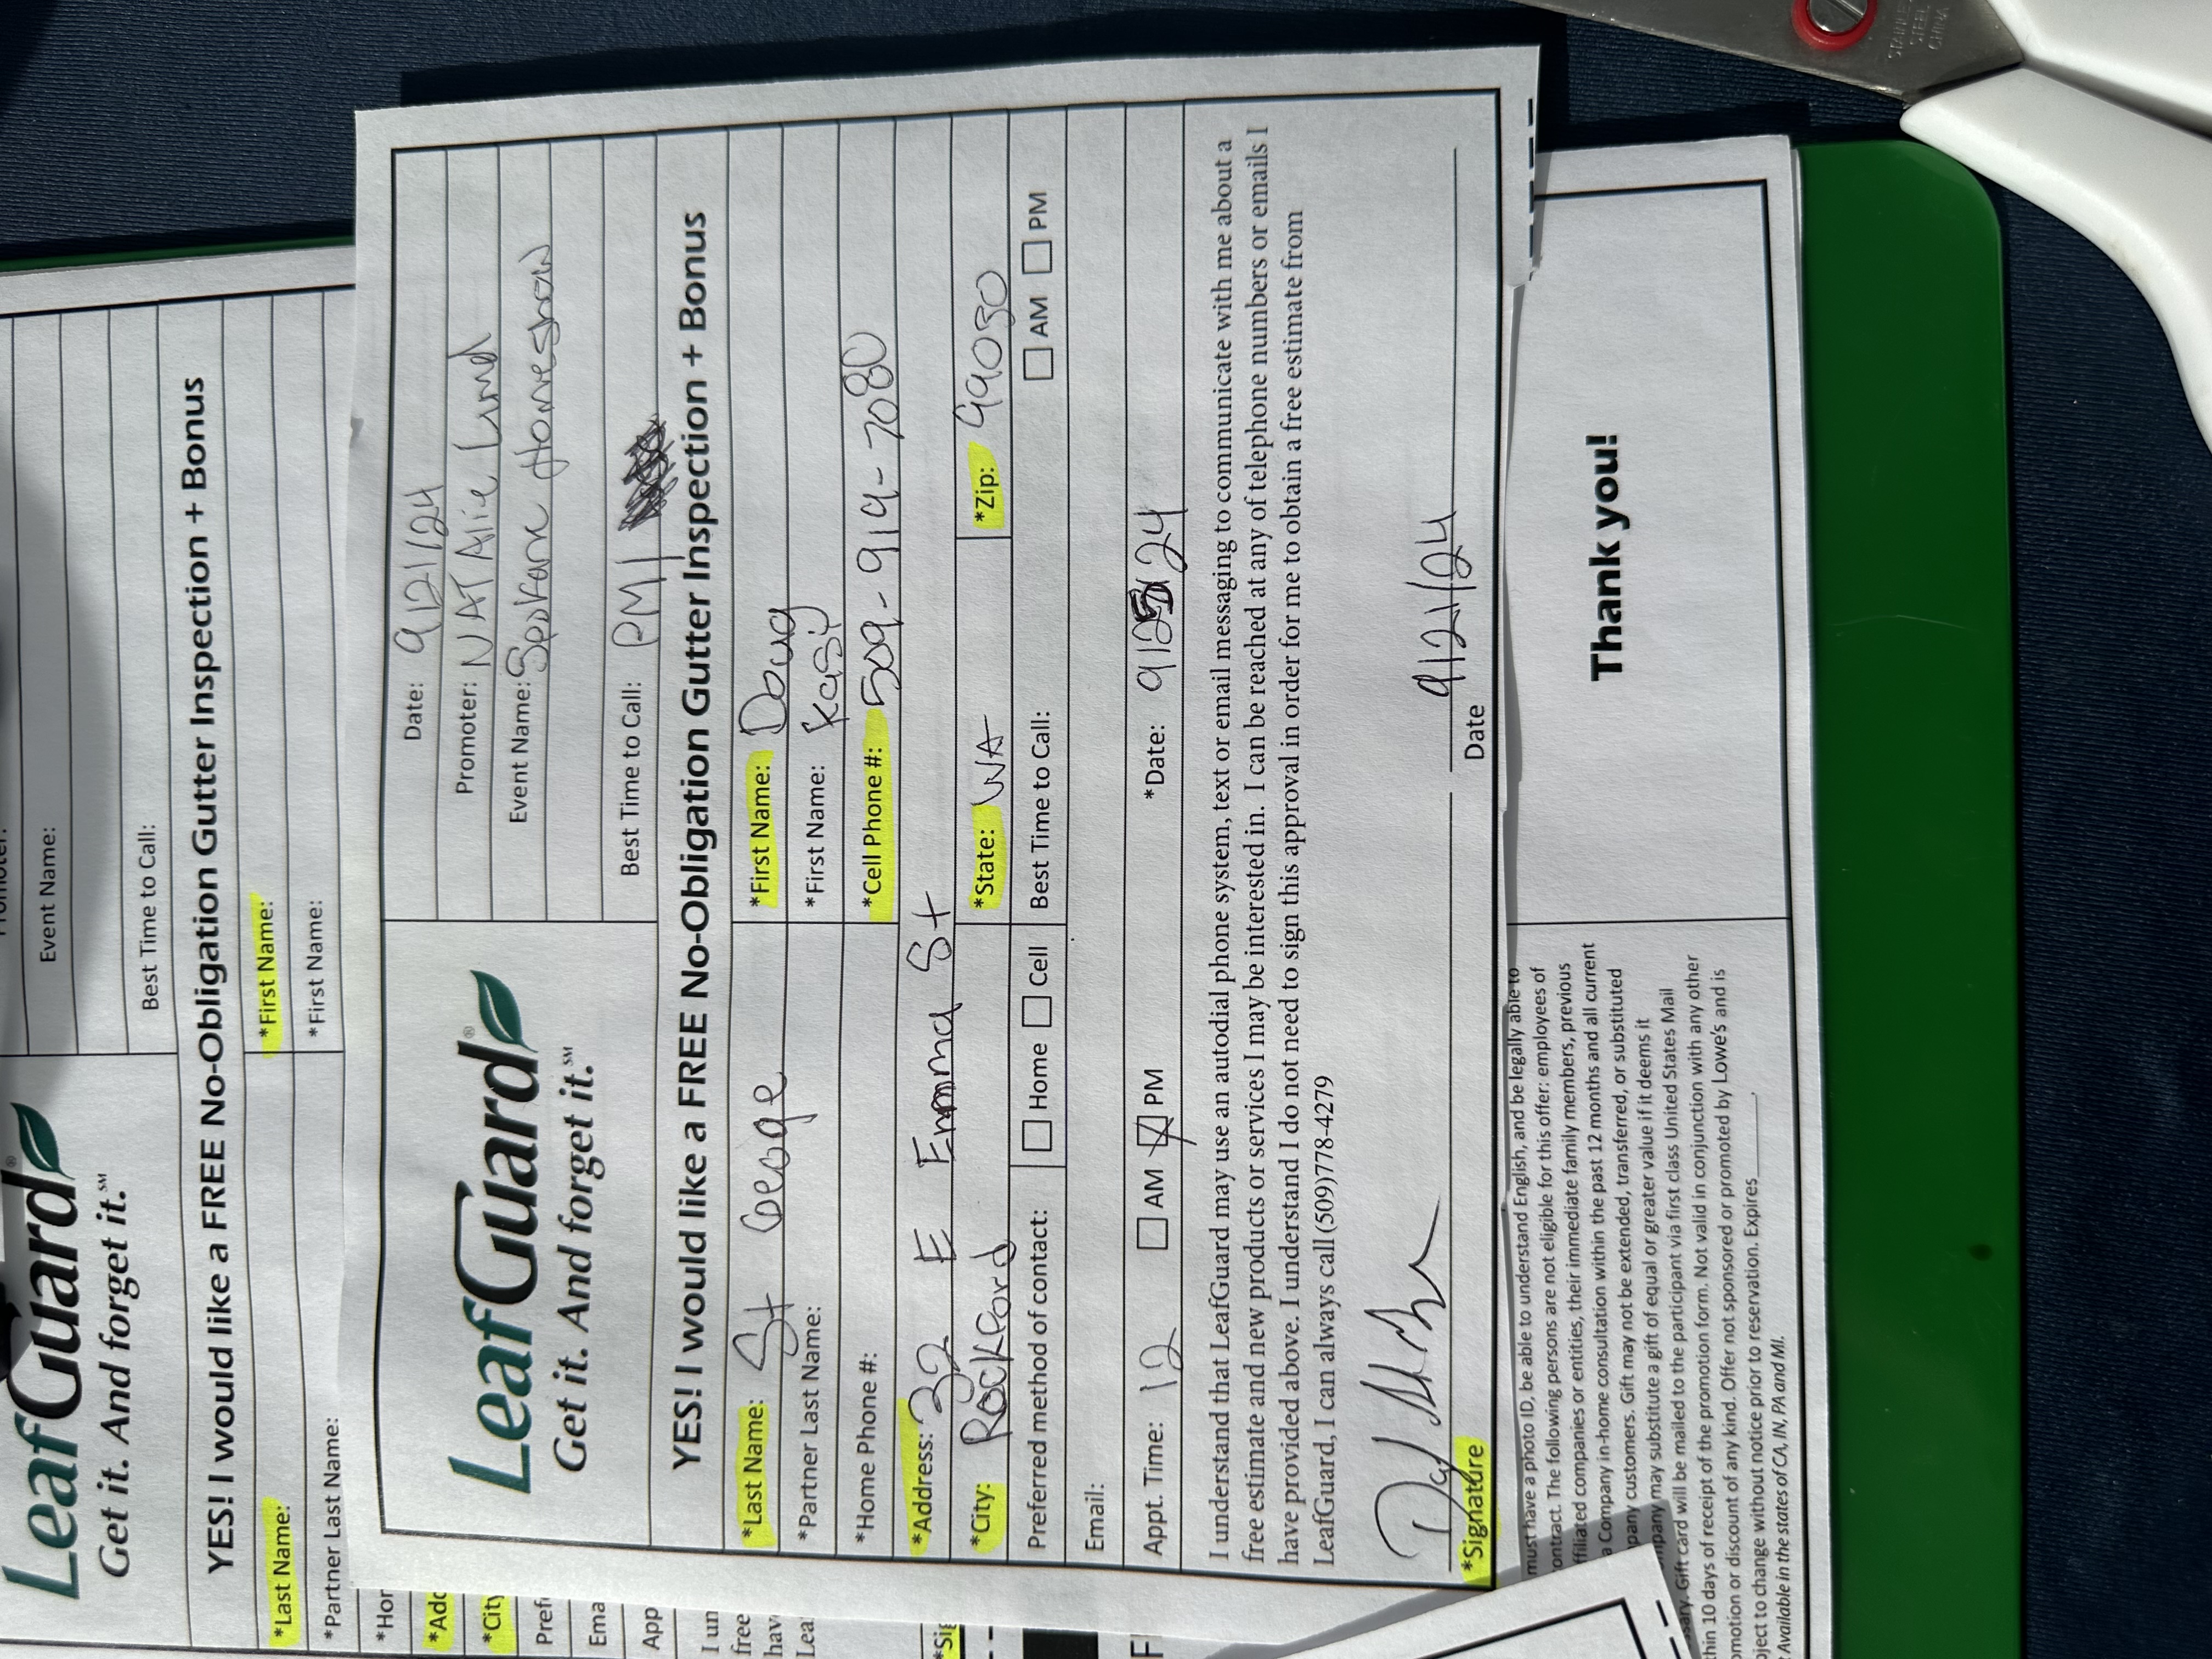 LeafGuard®
Get it. And forget it.℠
Promoter:
Event Name:
Best Time to Call:
YES! I would like a FREE No-Obligation Gutter Inspection + Bonus
*Last Name: *First Name:
*Partner Last Name: *First Name:
*Hor
*Add
*City
Pref
Ema
App
I un
free
hav
Lea
*Sig
F
LeafGuard®
Get it. And forget it.℠
Date: 9/21/24
Promoter: NATAlie Lund
Event Name: Spokane Homeshow
Best Time to Call: PM/
YES! I would like a FREE No-Obligation Gutter Inspection + Bonus
*Last Name: St Geoge *First Name: Doug
*Partner Last Name: *First Name: Kasi
*Home Phone #: *Cell Phone #: 509-919-7080
*Address: 32 E Emma St
*City: Rockford *State: WA *Zip: 99030
Preferred method of contact: Home Cell Best Time to Call: AM PM
Email:
Appt. Time: 12 AM PM *Date: 9/25/24
I understand that LeafGuard may use an autodial phone system, text or email messaging to communicate with me about a
free estimate and new products or services I may be interested in. I can be reached at any of telephone numbers or emails I
have provided above. I understand I do not need to sign this approval in order for me to obtain a free estimate from
LeafGuard, I can always call (509)778-4279
9/21/24
*Signature Date
must have a photo ID, be able to understand English, and be legally able to
ontract. The following persons are not eligible for this offer: employees of
ffiliated companies or entities, their immediate family members, previous
a Company in-home consultation within the past 12 months and all current
pany customers. Gift may not be extended, transferred, or substituted
mpany may substitute a gift of equal or greater value if it deems it
ssary. Gift card will be mailed to the participant via first class United States Mail
thin 10 days of receipt of the promotion form. Not valid in conjunction with any other
omotion or discount of any kind. Offer not sponsored or promoted by Lowe's and is
bject to change without notice prior to reservation. Expires________.
t Available in the states of CA, IN, PA and MI.
Thank you!
STAINLE
STEEL
CHINA